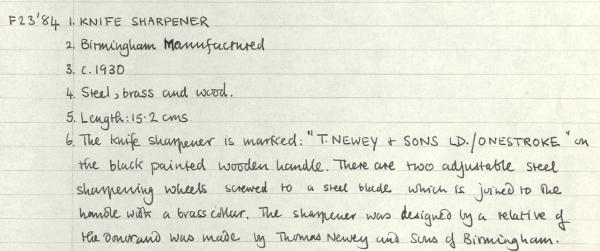 F23'84 1. KNIFE SHARPENER
2. Birmingham Manufactured
3. c. 1930
4. Steel, brass and wood.
5. Length: 15·2 cms
6. The knife sharpener is marked: "T. NEWEY + SONS LD./ONESTROKE" on
the black painted wooden handle. There are two adjustable steel
sharpening wheels screwed to a steel blade which is joined to the
handle with a brass collar. The sharpener was designed by a relative of
the donor and was made by Thomas Newey and Sons of Birmingham.